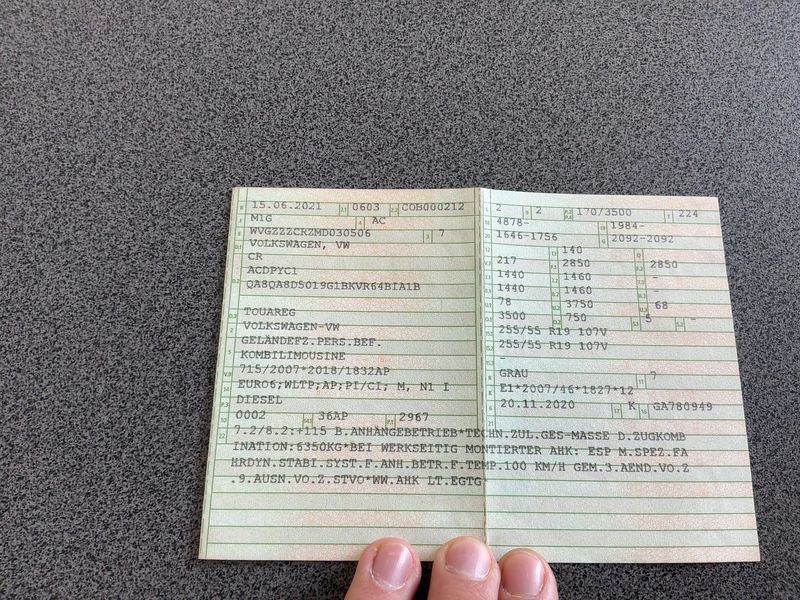 15.06.2021 0603 COB000212
M1G AC
WVGZZZCRZMD030506 7
VOLKSWAGEN, VW
CR
ACDPYC1
QA8QA8D5019G1BKVR64BIA1B
TOUAREG
VOLKSWAGEN-VW
GELÄNDEFZ.PERS.BEF.
KOMBILIMOUSINE
715/2007*2018/1832AP
EURO6;WLTP;AP;PI/CI; M, N1 I
DIESEL
0002 36AP 2967
2 2 170/3500 224
4878- 1984-
1646-1756 2092-2092
140
217 2850 2850
1440 1460 -
1440 1460 -
78 3750 68
3500 750 5 -
255/55 R19 107V
255/55 R19 107V
-
GRAU 7
E1*2007/46*1827*12
20.11.2020 K GA780949
7.2/8.2:+115 B.ANHÄNGEBETRIEB*TECHN.ZUL.GES-MASSE D.ZUGKOMB
INATION:6350KG*BEI WERKSEITIG MONTIERTER AHK: ESP M.SPEZ.FA
HRDYN.STABI.SYST.F.ANH.BETR.F.TEMP.100 KM/H GEM.3.AEND.VO.Z
.9.AUSN.VO.Z.STVO*WW.AHK LT.EGTG